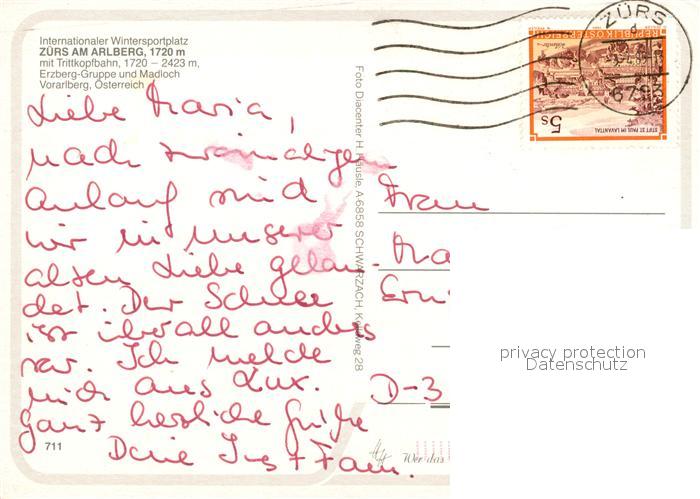 Internationaler Wintersportplatz
ZÜRS AM ARLBERG, 1720 m
mit Trittkopfbahn, 1720 – 2423 m,
Erzberg-Gruppe und Madloch
Vorarlberg, Österreich
Liebe Maria,
nach
Anlauf sind
wir in unserer
alten Liebe gelan-
det. Der Schnee
ist überall anders
rar. Ich melde
mich aus Lux.
Ganz herzliche Grüße
Deine + Fam.
711
Foto Diacenter H. Häusle, A-6858 SCHWARZACH, Kellweg 28
Frau
Ma
D-3
Wer das
ZÜRS
REPUBLIK ÖSTERREICH
5s
STIFT ST. PAUL IM LAVANTTAL
privacy protection
Datenschutz